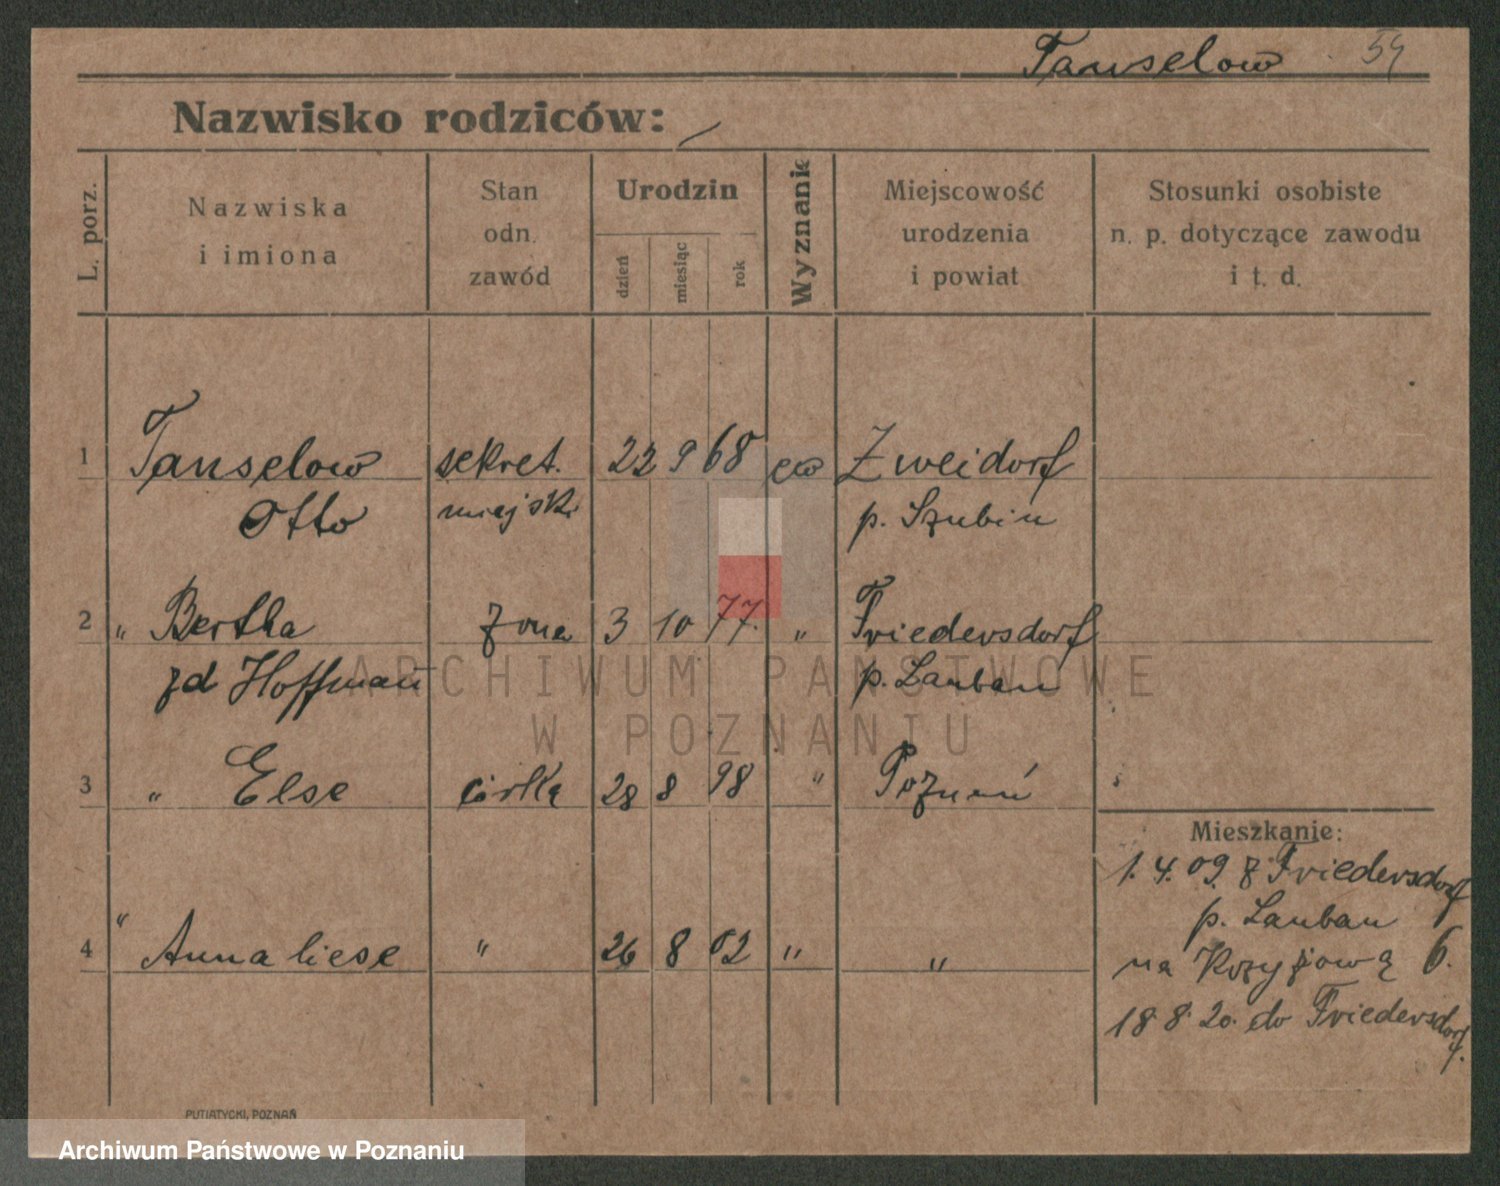 Tanselow 54
Nazwisko rodziców:
L. porz.
Nazwiska i imiona
Stan odn. zawód
Urodzin
dzień miesiąc rok
Wyznanie
Miejscowość urodzenia i powiat
Stosunki osobiste n. p. dotyczące zawodu i t. d.
1 Tanselow sekret. 22 9 68 ew Zweidorf
Otto miejski p. Szubin
2 " Bertha żona 3 10 77. " Friedersdorf
zd Hoffmann p. Lauban
3 " Else córka 28 8 98 " Poznań
Mieszkanie:
1. 4. 09. z Friedersdorf
p. Lauban
4 " Anna liese " 26 8 02 " "
na Krzyżową 6.
18 8. 20. do Friedersdorf.
PUTIATYCKI, POZNAŃ
ARCHIWUM PAŃSTWOWE
W POZNANIU
Archiwum Państwowe w Poznaniu